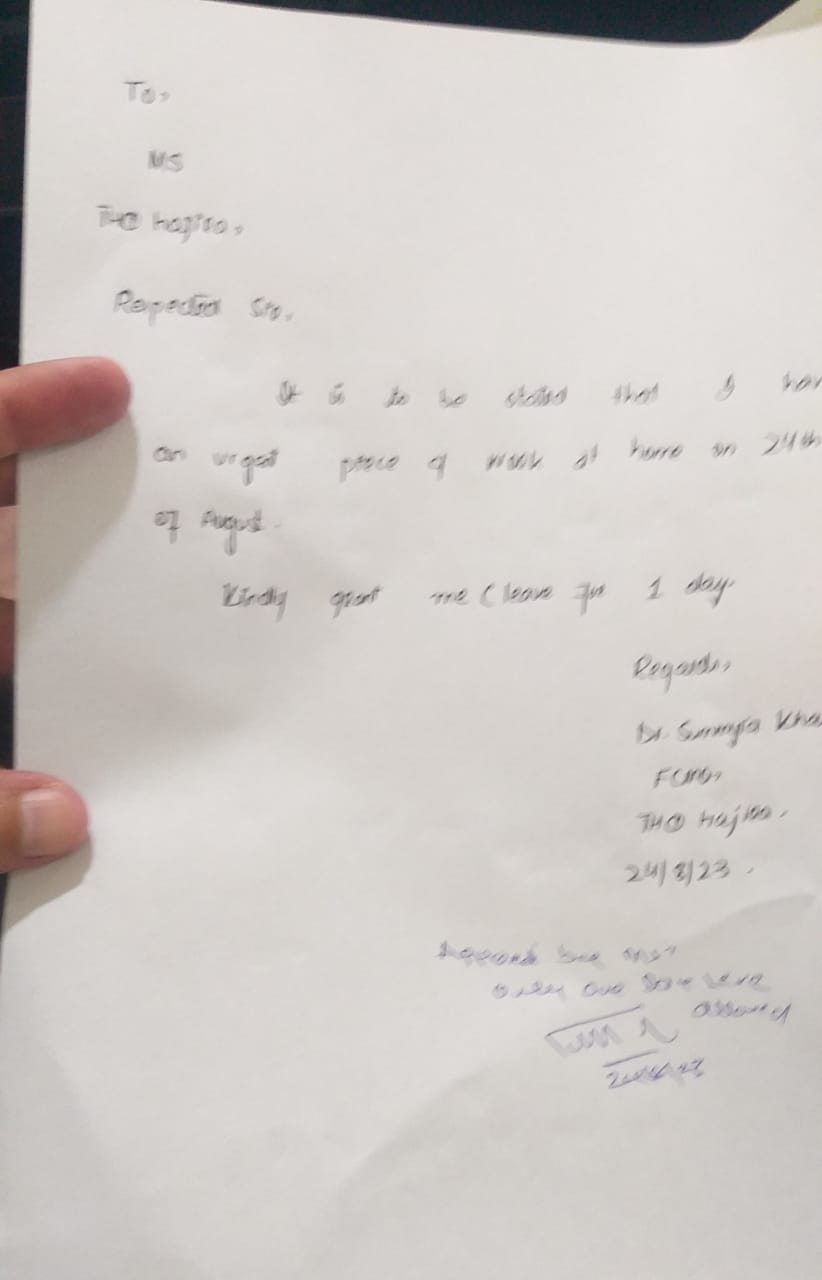 To,
MS
THQ Hajira,
Respected Sir,
It is to be stated that I hav
an urgent piece of work at home on 24th
of August.
Kindly grant me ( leave for 1 day.
Regards,
Dr. Sumayia Kha
FCMO,
THQ Hajira.
24/8/23.
only one day leave
allowed